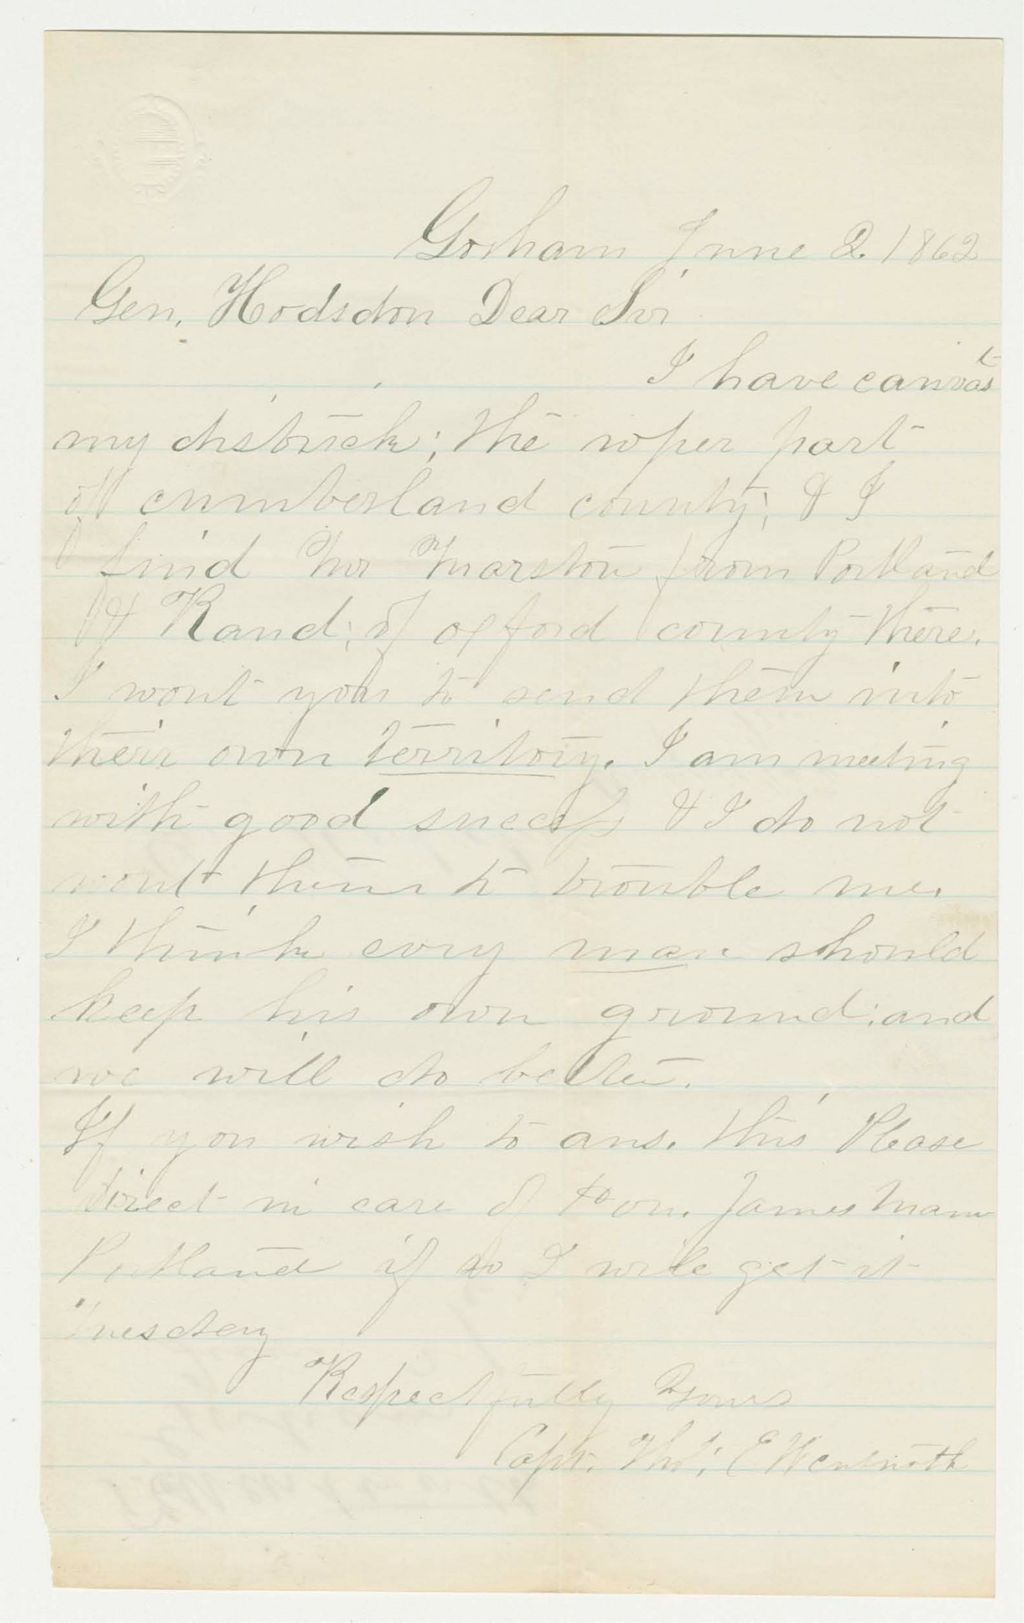 Gorham June 2. 1862
Gen. Hodsdon Dear Sir
I have canvast
my district; the uper part
of cumberland county; & I
find Mr Marston from Portland
& Rand; of oxford county there.
I wont you to send them into
their own territory. I am meeting
with good success & I do not
wont them to trouble me.
I think evry man should
keep his own ground; and
we will do better.
If you wish to ans. this Please
direct in care of Hon. James Mann
Portland if so I will get it
Tuesday
Respectfully Yours
Capt. Tho's; E Wentworth